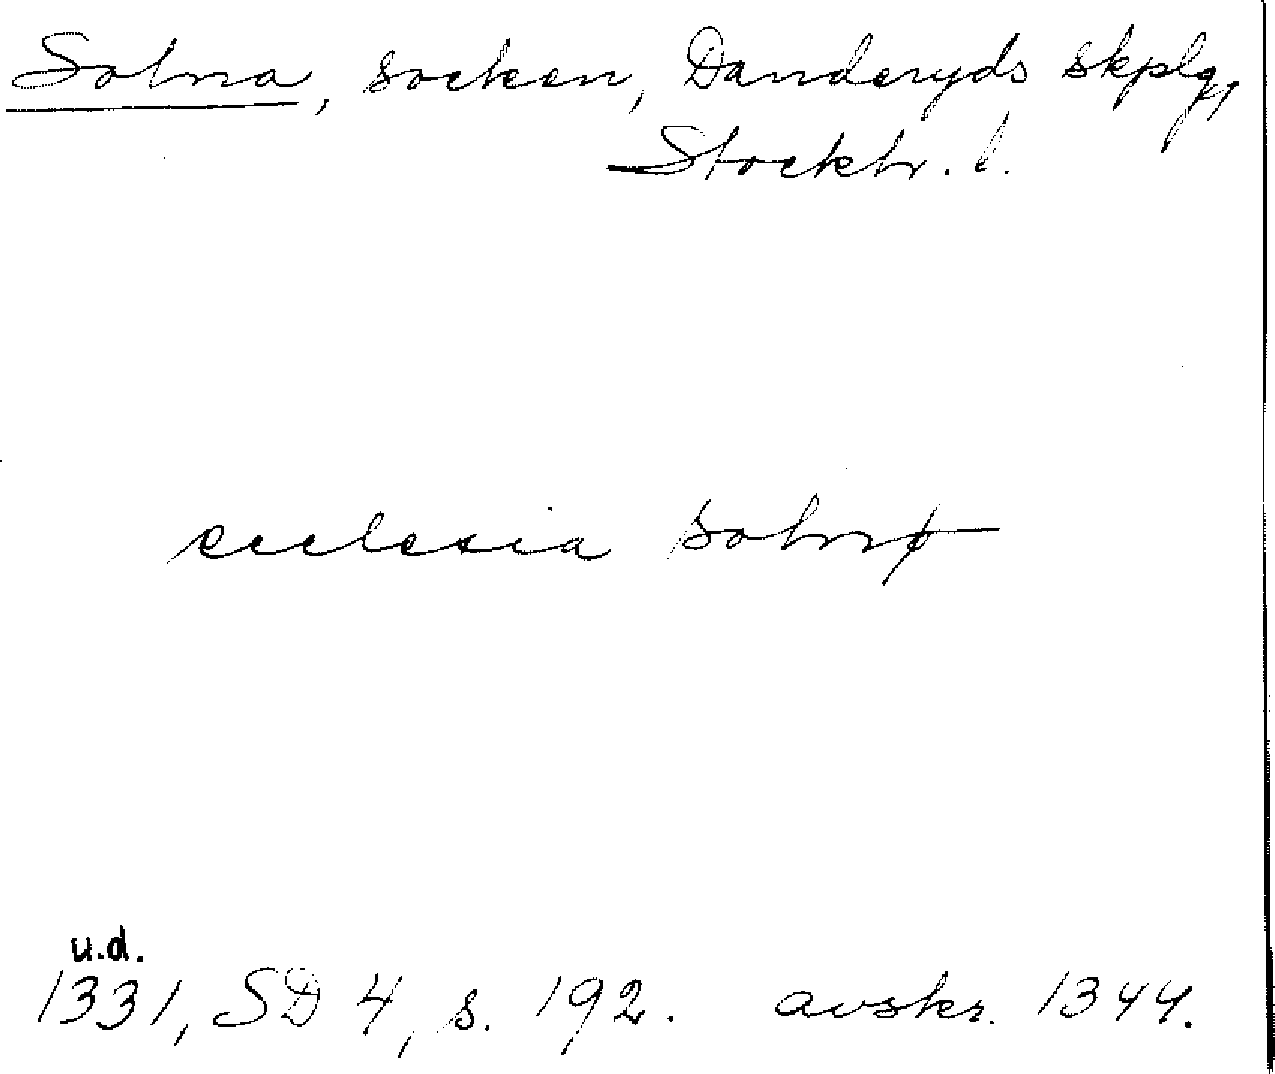 Solna, socken, Danderyds skplg,
Stockh. l.
ecclesia solnø
u.d.
1331, SD 4, s. 192. avskr. 1344.